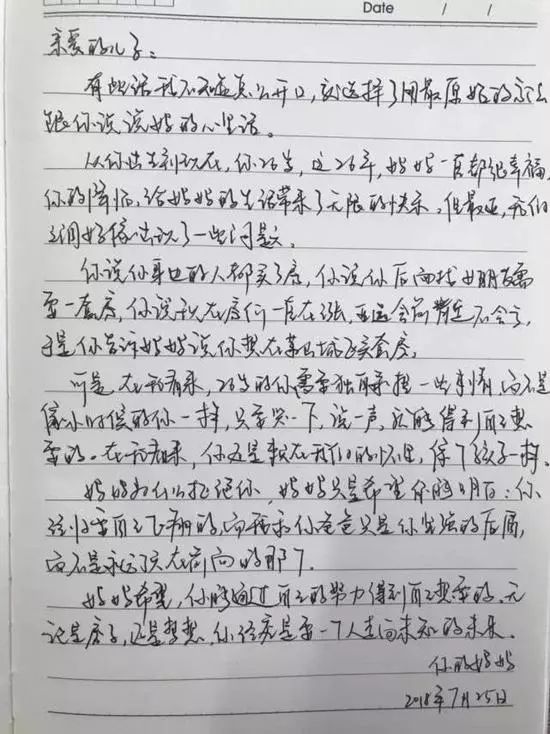 Date / /
亲爱的儿子：
有些话我不知道怎么开口，就选择了用最原始的方法
跟你说说妈的心里话。
从你出生到现在，你26岁，这26年，妈妈一直都很幸福，
你的降临，给妈妈的生活带来了无限的快乐，但最近，我们
之间好像出现了一些问题。
你说你身边的人都买了房，你说你后面找女朋友需
要一套房，你说现在房价一直在涨，
于是你告诉妈妈说你想在买套房。
可是在我看来，26岁的你需要独自承担一些事情，而不是
像小时候的你一样，只要哭一下，说一声，就能得到自己想
要的。在我看来，你还是躲在我们的怀里，像个孩子一样。
妈妈为什么拒绝你，妈妈只是希望你能明白：你
终归要自己飞翔的，而我和你爸爸只是你坚强的后盾，
而不是永远顶在前面的那个。
妈妈希望，你能通过自己的努力得到自己想要的，无
论是房子，还是梦想，你终究是要一个人走向未知的未来。
你的妈妈
2018年7月25日